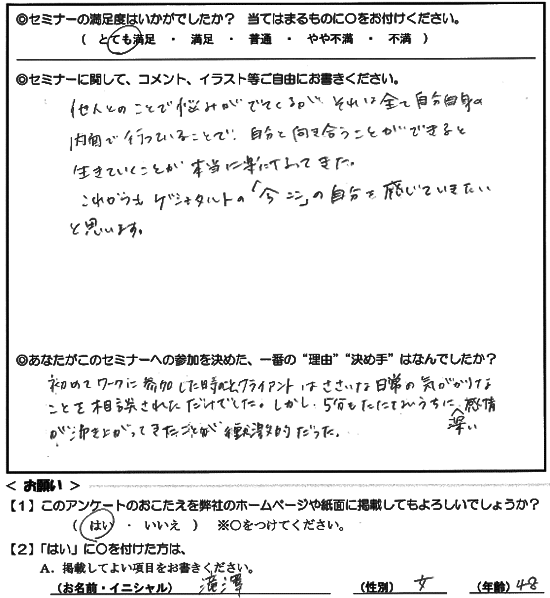 ◎セミナーの満足度はいかがでしたか？ 当てはまるものに○をお付けください。
（ とても満足 ・ 満足 ・ 普通 ・ やや不満 ・ 不満 ）
◎セミナーに関して、コメント、イラスト等ご自由にお書きください。
他人とのことで悩みがでてくるが、それは全て自分自身の
内面で行っていることで、自分と向き合うことができると
生きていくことが本当に楽になってきた。
これからも ゲシュタルトの「今ここ」の自分を感じていきたい
と思います。
◎あなたがこのセミナーへの参加を決めた、一番の“理由”“決め手”はなんでしたか？
初めてワークに参加した時のクライアントはささいな日常の気がかりな
ことを相談されただけでした。しかし、5分もたたないうちに、深い感情
が沸き上がってきたことが 刺激的だった。
＜ お願い ＞
【１】このアンケートのおこたえを弊社のホームページや紙面に掲載してもよろしいでしょうか？
（ はい ・ いいえ ） ※○をつけてください。
【２】「はい」に○を付けた方は、
Ａ．掲載してよい項目をお書きください。
（お名前・イニシャル） 滝澤 （性別） 女 （年齢） 48